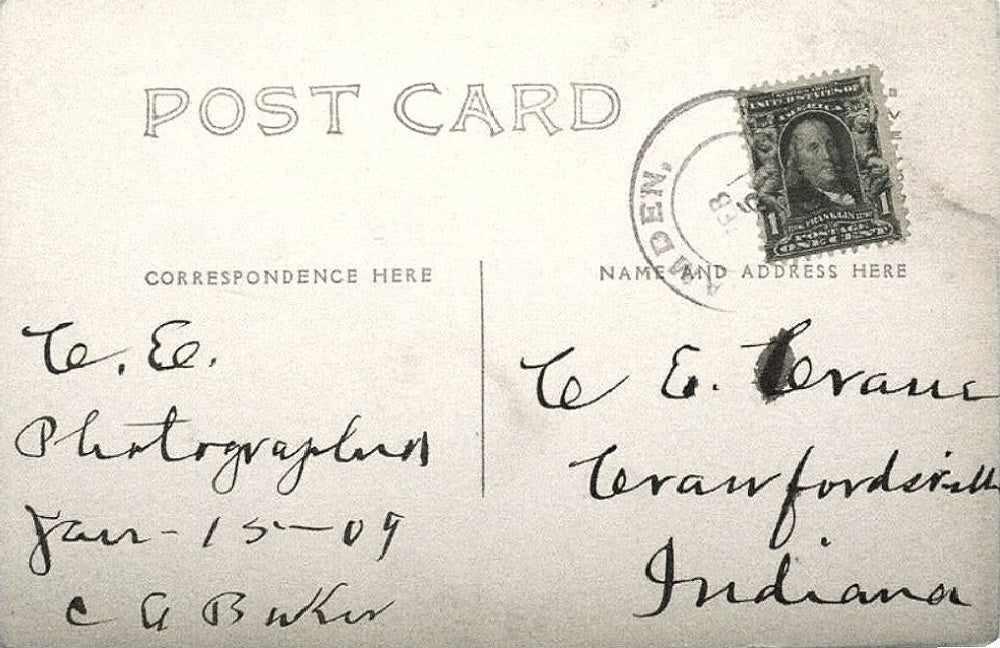 POST CARD
MDEN,
FEB
5
UNITED STATES OF
AMERICA
1 FRANKLIN 1
POSTAGE
ONE CENT
CORRESPONDENCE HERE
NAME AND ADDRESS HERE
C. E.
Photographer
Jan - 15 - 09
C A Baker
C E. Crane
Crawfordsville
Indiana